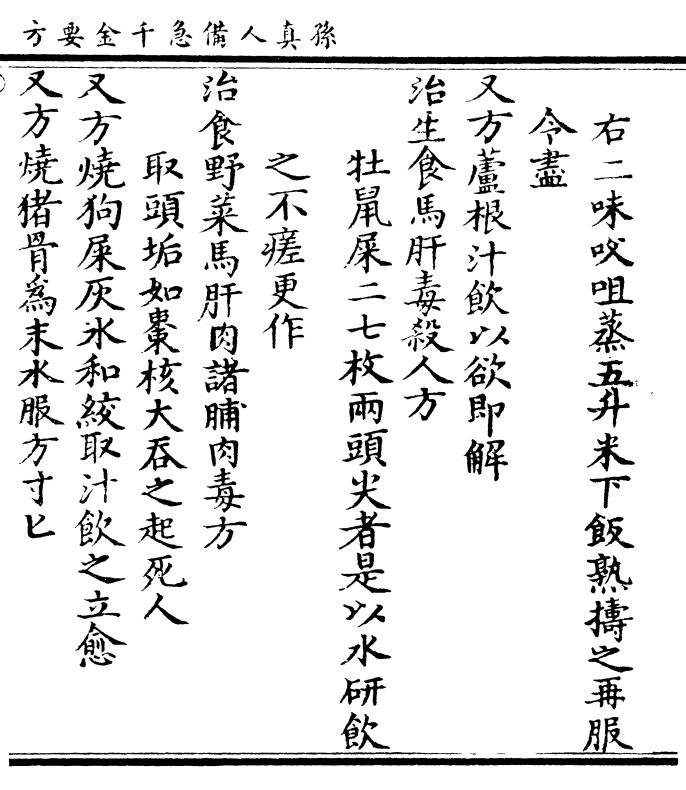 孫真人備急千金要方
右二味㕮咀蒸五升米下飯熟擣之再服
令盡
又方蘆根汁飲以欲即解
治生食馬肝毒殺人方
牡鼠屎二七枚兩頭尖者是以水研飲
之不瘥更作
治食野菜馬肝肉諸脯肉毒方
取頭垢如棗核大吞之起死人
又方燒狗屎灰水和絞取汁飲之立愈
又方燒猪骨為末水服方寸匕